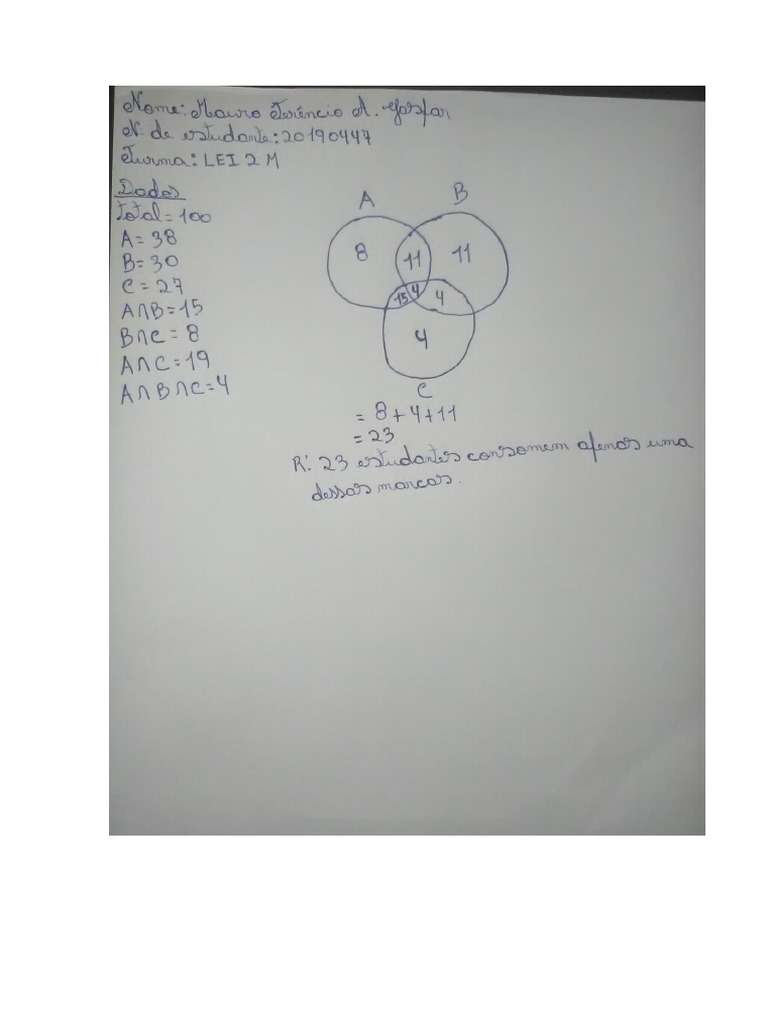 Nome: Mauro Terêncio A. Gaspar
N. de estudante: 20190447
Turma: LEI 2 M
Dados
total = 100
A = 38
B = 30
C = 27
A∩B = 15
B∩C = 8
A∩C = 19
A∩B∩C = 4
A B
8 11 11
15 4 4
4
C
= 8 + 4 + 11
= 23
R: 23 estudantes consomem apenas uma
dessas marcas.